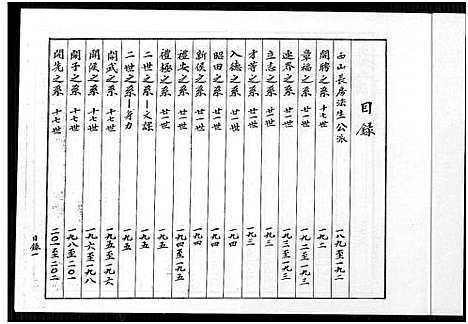 目錄
西山長房法生公派 一八九至一九二
開騁之系 十七世 一九二
章榆之系 廿一世 一九二至一九三
述界之系 廿一世 一九二至一九三
立志之系 廿一世 一九三
才等之系 廿一世 一九三
入德之系 廿一世 一九四
昭田之系 廿一世 一九四
新保之系 廿一世 一九四
禮安之系 廿一世 一九四至一九五
禮極之系 廿一世 一九五
二世之系—文謀 一九五
二世之系—身力 一九五
開武之系 十七世 一九五至一九六
開保之系 十七世 一九六至一九八
開子之系 十七世 一九八至二〇一
開先之系 十七世 二〇一至二〇二
目錄一